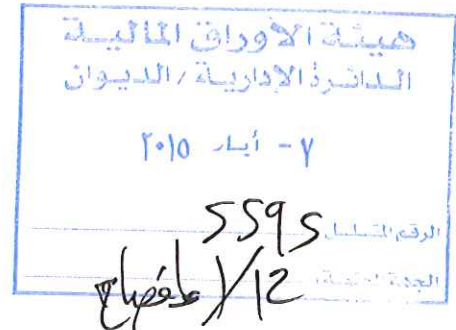 هيئة الأوراق المالية
الدائرة الإدارية / الديوان
٧ - أيار ٢٠١٥
الرقم المتسلسل ٥٥٩٥
الجهة المختصة: ١٢/١ الإفصاح